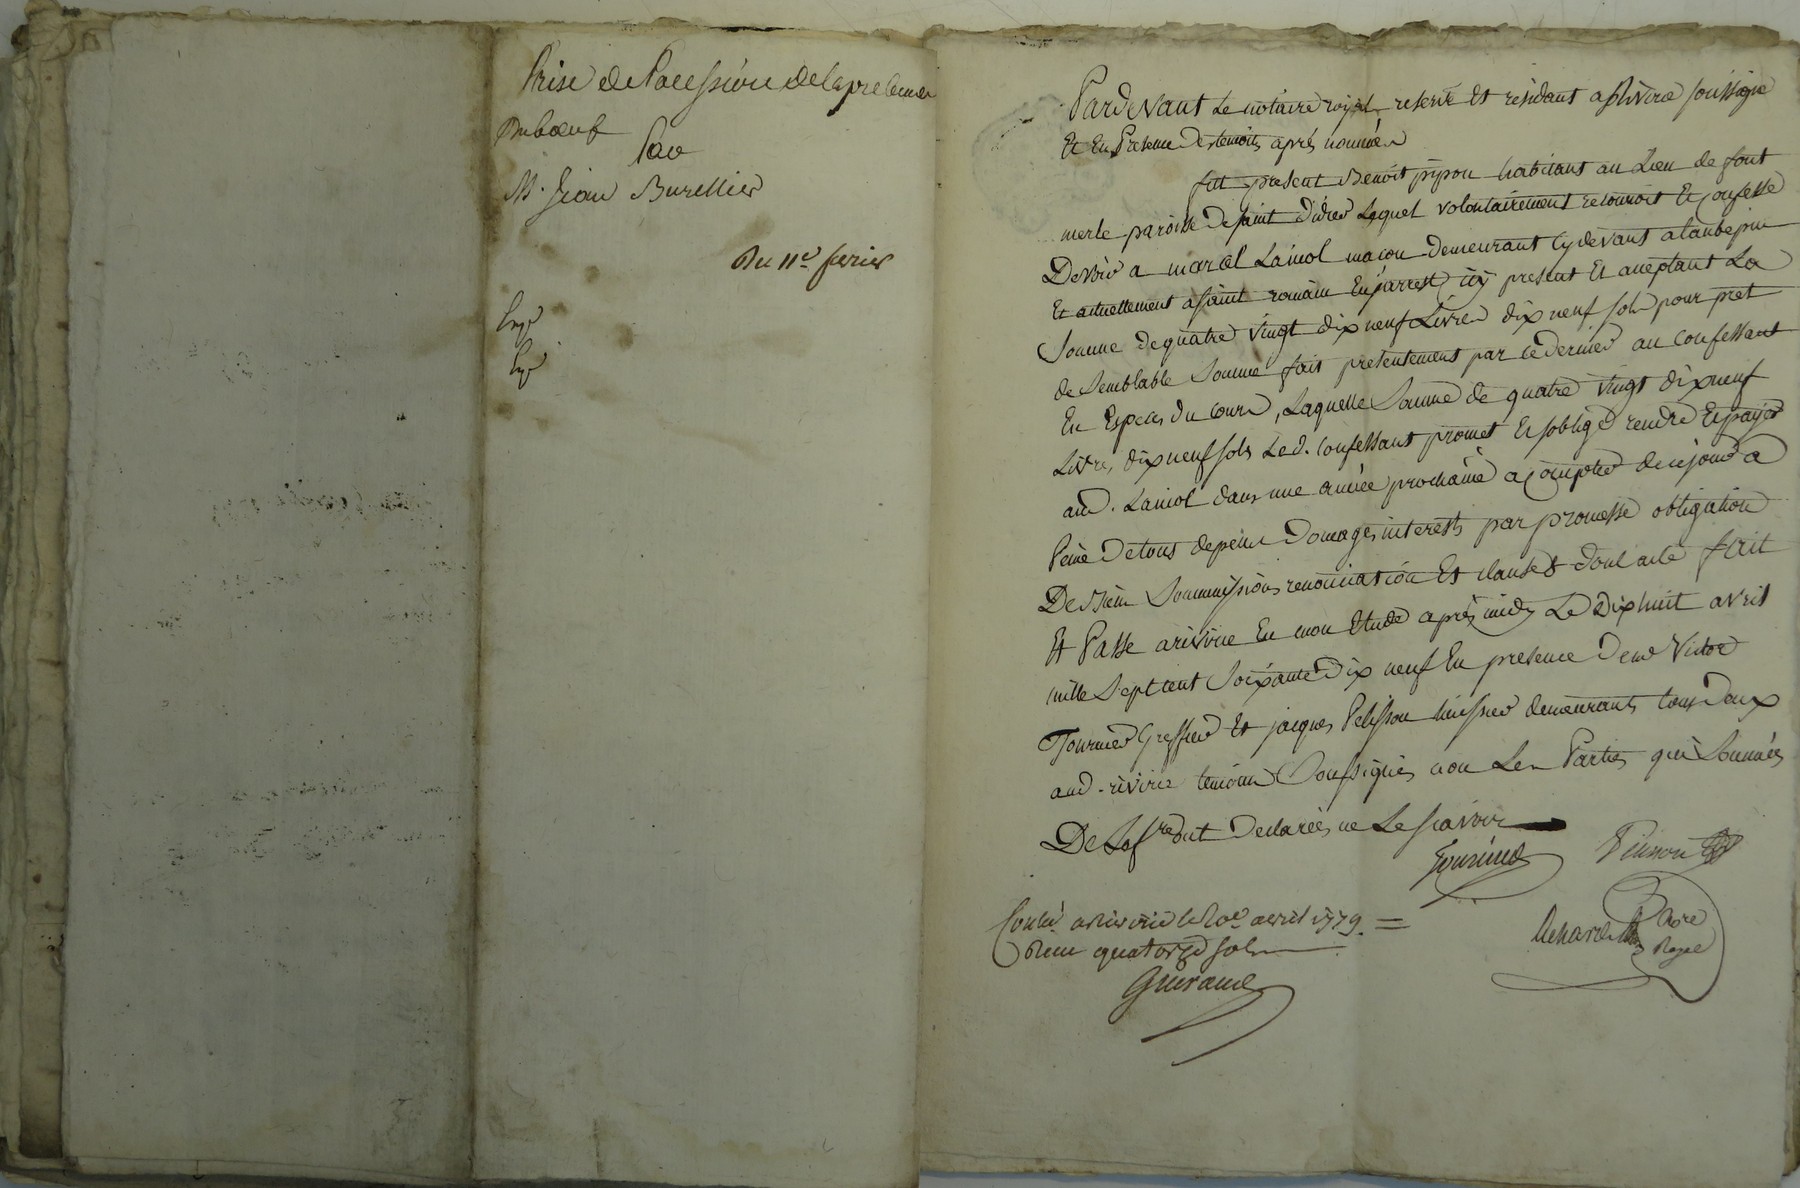 Prise de Possession de la prebende
Duboeuf
Par
Mr. Jean Burellier
Du 11e fevrier
Exp
Exp
Pardevant Le notaire royal reservé Et résidant a Riverie soussigné
Et En Presence des temoins après nommés
fut present Benoit pipon habitant au Lieu de font
merle paroisse de saint didier Lequel volontairement reconnoit Et confesse
Devoir a marcel Lainol macon demeurant cy devant a laubepin
Et actuellement a saint romain En jarrest icy present Et acceptant La
Somme de quatre vingt dix neuf Livres dix neuf sols pour pret
de Semblable Somme fait presentement par ce dernier au confessant
En Especes du cours, Laquelle Somme de quatre vingt dix neuf
Livres dix neuf sols Led. confessant promet Et soblige rendre Et payer
aud. Lainol dans une année prochaine a compter de ce jour a
Peine de tous depens domages interests par promesse obligation
De biens Soummissions renonciation Et clauses dont acte fait
Et Passé a riverie En mon Etude après midy Le dix huit avril
mille Sept cent Soixante dix neuf En presence de me Victor
Fournier Greffier Et jacques Pelisson huissier demeurants tous deux
aud. riverie temoins Soussignés non Les Parties qui Sommées
De Le fre ont Declarées ne Le scavoir
Fournier
Contlé a Riverie le 20e avril 1779. =
Recu quatorze sols
Guiraud
Nore
Royal